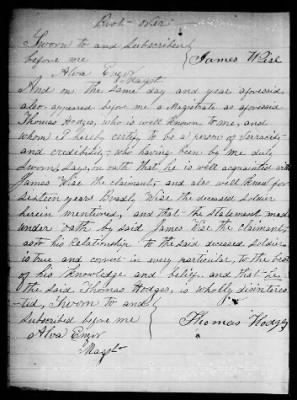 Book - over
Sworn to and Subscribed
before me James Wise
Alva Magst
And on the same day and year aforesaid
also appeared before me a Magistrate as aforesaid
Thomas Hodges, who is well known to me, and
whom I hereby certify to be a person of veracity
and credibility, who having been by me duly
Sworn, Says, on oath that he is well acquainted with
James Wise the claimant, and also well knew for
Sixteen years Wise, the deceased Soldier
herein mentioned, and that the Statement made
under oath by said James Wise the claimant,
as to his Relationship to the said deceased Soldier
is true and correct in every particular, to the best
of his Knowledge and belief, and that he
the said Thomas Hodges, is wholly disinteres
-ted, Sworn to and
Subscribed before me Thomas Hodges
Alva
Magst